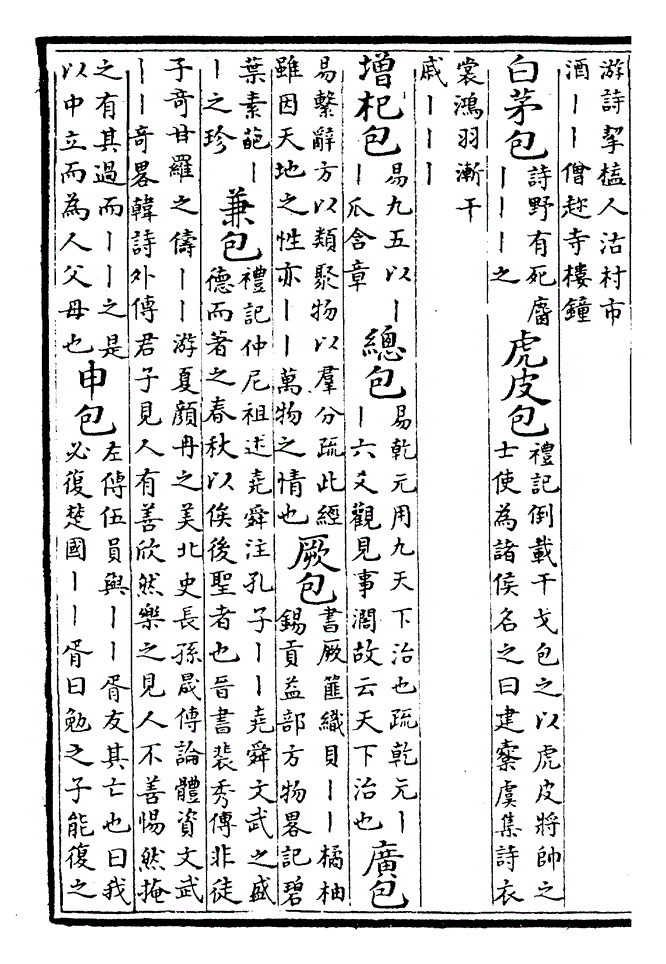 游詩挈榼人沽村市
酒丨丨僧趂寺樓鐘
白茅包
詩野有死麕
丨丨丨之
虎皮包
禮記倒載干戈包之以虎皮將帥之
士使為諸侯名之曰建櫜虞集詩衣
裳鴻羽漸干
戚丨丨丨
增杞包
易九五以丨
丨瓜含章
總包
易乾元用九天下治也疏乾元丨
丨六爻觀見事濶故云天下治也
廣包
易繫辭方以類聚物以羣分疏此經
雖因天地之性亦丨丨萬物之情也
厥包
書厥篚織貝丨丨橘柚
錫貢益部方物畧記碧
葉素葩丨
丨之珍
兼包
禮記仲尼祖述堯舜注孔子丨丨堯舜文武之盛
德而著之春秋以俟後聖者也晉書裴秀傳非徒
子奇甘羅之儔丨丨游夏顔冉之美北史長孫晟傳論體資文武
丨丨奇畧韓詩外傳君子見人有善欣然樂之見人不善惕然掩
之有其過而丨丨之是
以中立而為人父母也
申包
左傳伍員與丨丨胥友其亡也曰我
必復楚國丨丨胥曰勉之子能復之